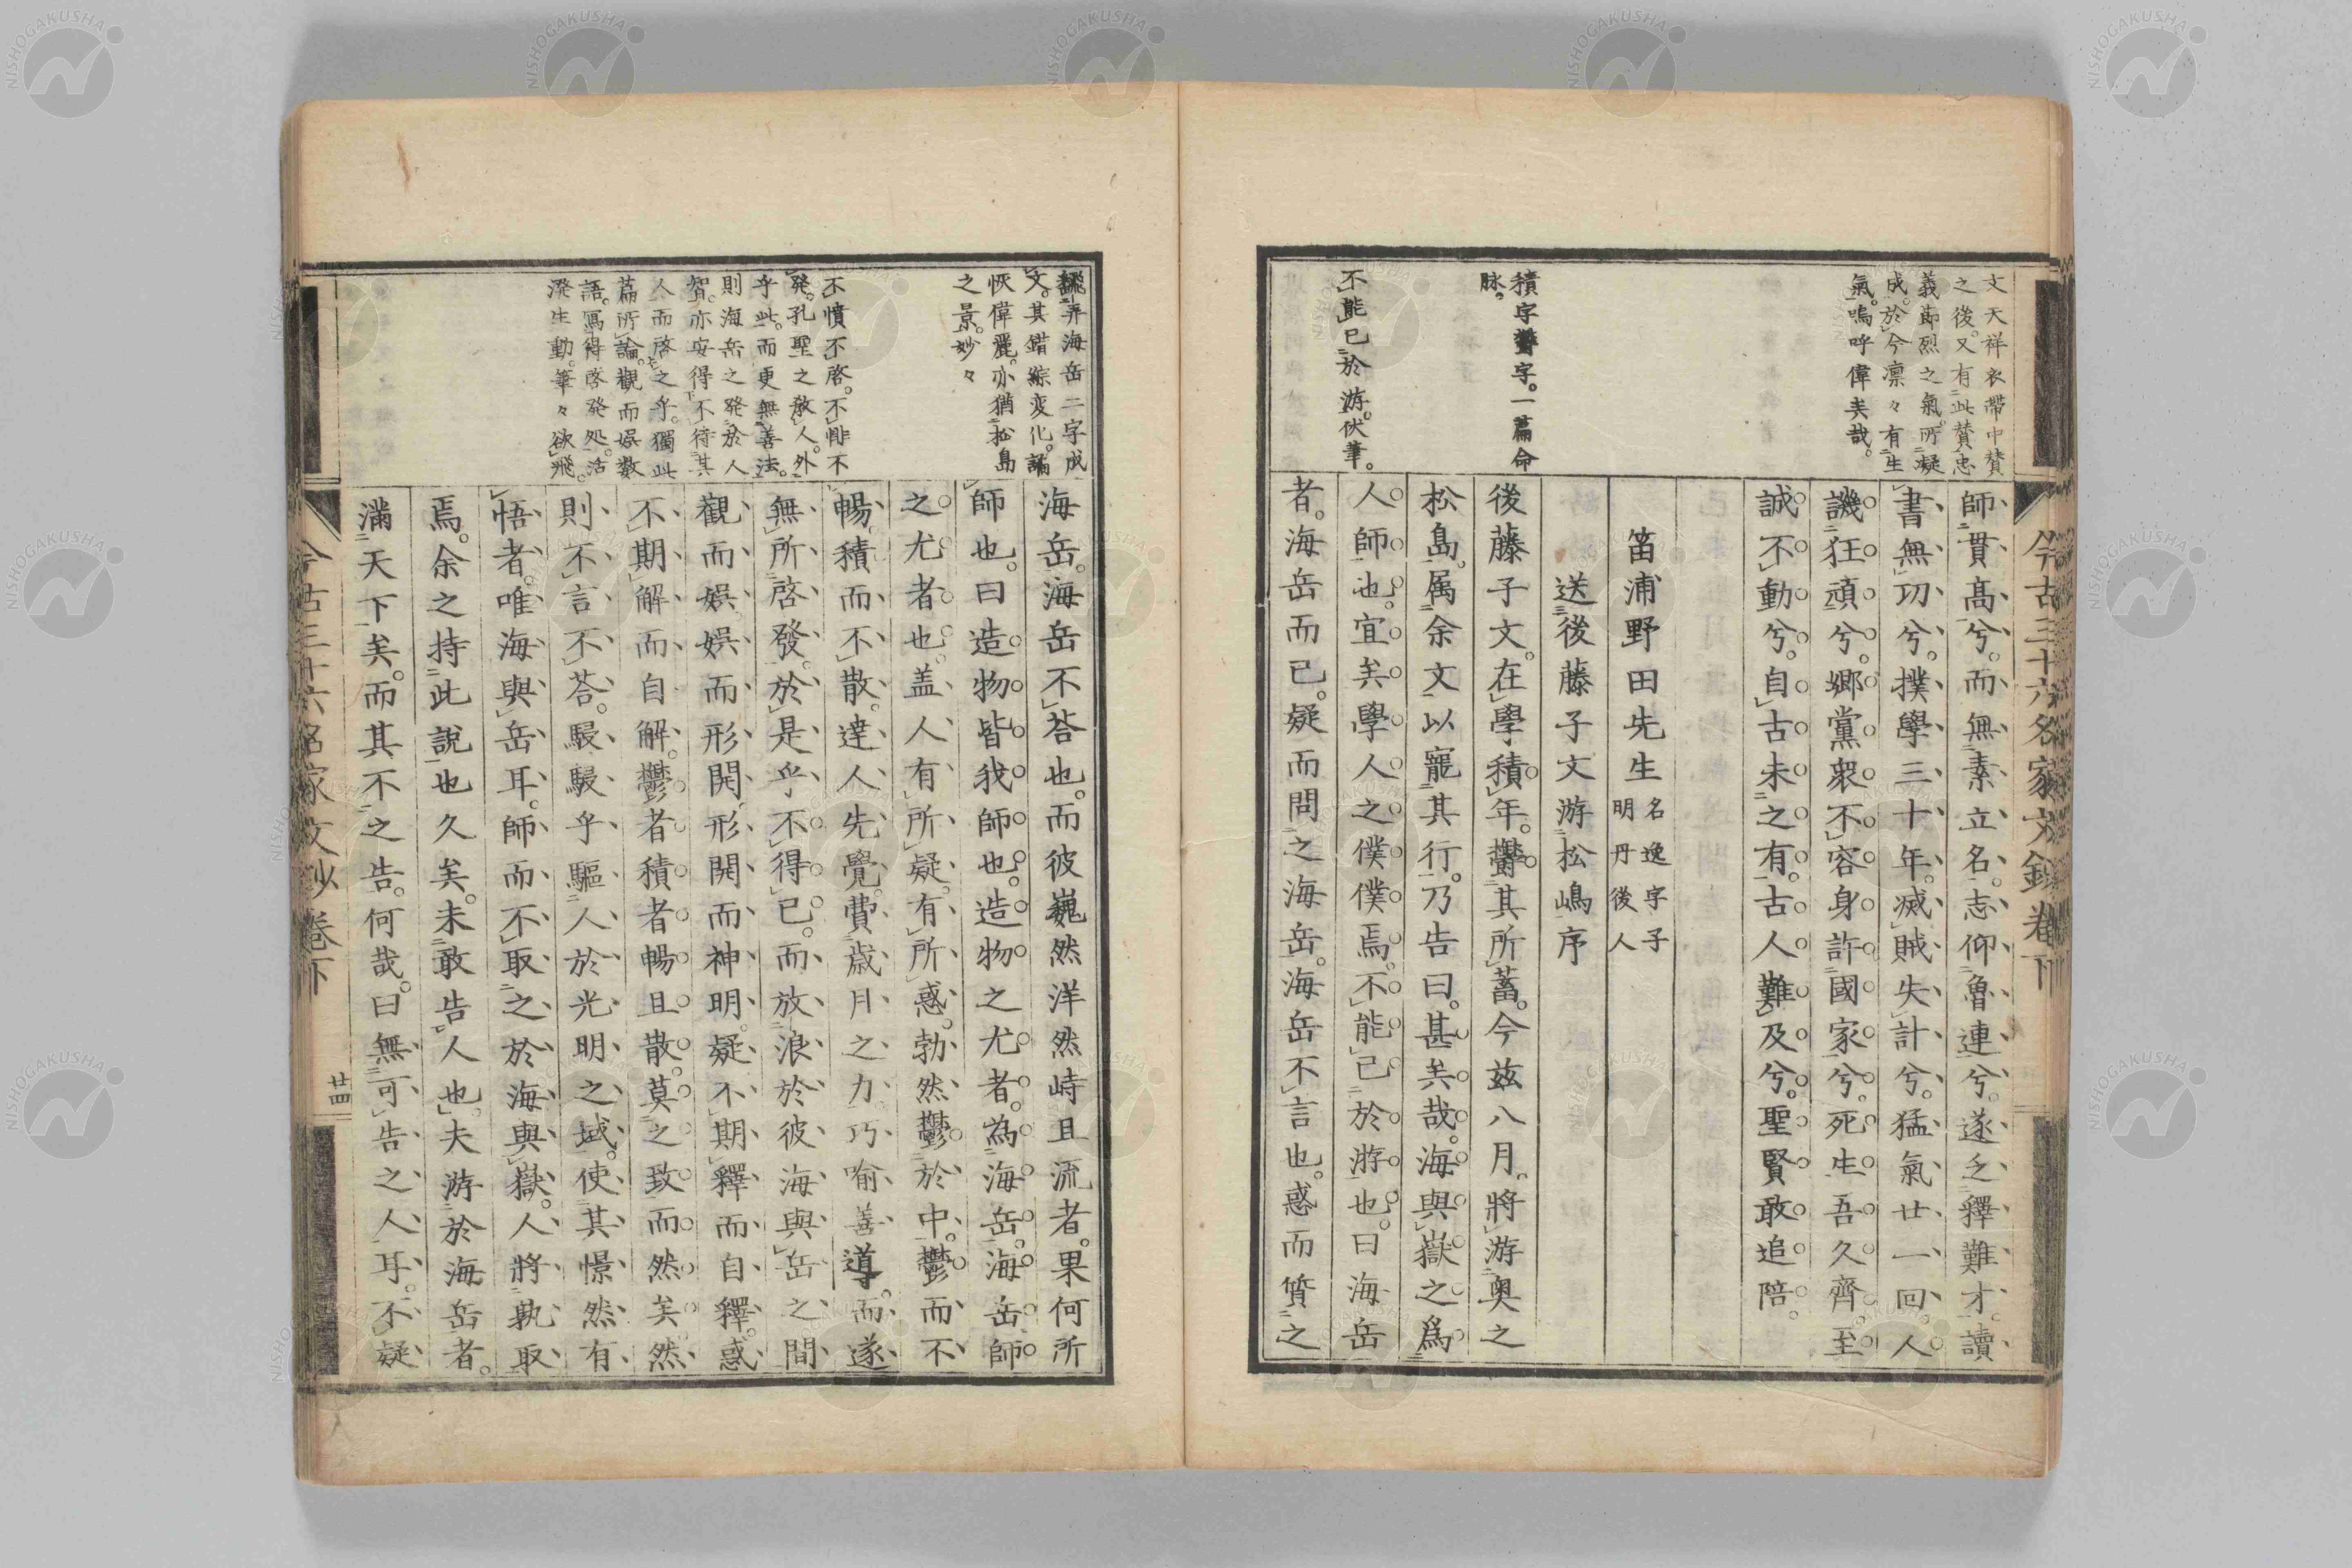 文天祥衣帶中賛
之後。又有此賛。忠
義節烈之氣。所凝
成。於今凛々有生
氣。嗚呼偉矣哉。
積字欝字。一篇命
脉。
不能已於游。伏筆。
今古三十六名家文鈔卷下
師貫高兮。而無素立名。志仰魯連兮。遂乏釋難才。讀
書無功兮。撲學三十年。滅賊失計兮。猛氣廿一回。人
譏狂頑兮。鄉黨衆不容身。許國家兮。死生吾久齊。至
誠不動兮。自古未之有。古人難及兮。聖賢敢追陪。
笛浦野田先生 名逸字子明丹後人
送後藤子文游松嶋序
後藤子文。在學積年。欝其所蓄。今兹八月。將游奥之
松島。属余文以寵其行。乃告曰。甚矣哉。海與嶽之爲
人師也。宜矣學人之僕僕焉。不能已於游也。曰海岳
者。海岳而已。疑而問之海岳。海岳不言也。惑而質之
飜弄海岳二字成
文。其錯綜変化。譎
恢偉麗。亦猶松島
之景。妙々
不憤不啓。不悱不
発。孔聖之教人。外
乎此。而更無善法。
則海岳之発於人
智。亦安得不待其
人而啓之乎。獨此
篇所論。觀而娯数
語。寫得啓発処。活
溌生動。筆々欲飛。
海岳。海岳不荅也。而彼巍然洋然峙且流者。果何所
師也。曰造物皆我師也。造物之尤者。為海岳。海岳師
之尤者也。盖人有所疑。有所惑。勃然鬱於中。鬱而不
暢。積而不散。達人先覺。費歳月之力。巧喻善導。而遂
無所啓發。於是乎不得已。而放浪於彼海與岳之間
觀而娯。娯而形開。形開而神明。疑不期釋而自釋。惑
不期解而自解。鬱者積者暢且散。莫之致而然矣。然
則不言不荅。駸駸乎驅人於光明之域。使其憬然有
悟者。唯海與岳耳。師而不取之於海與嶽。人將孰取
焉。余之持此説也久矣。未敢告人也。夫游於海岳者。
滿天下矣。而其不之告。何哉。曰無可告之人耳。不疑
今古三十六名家文鈔卷下
廿四